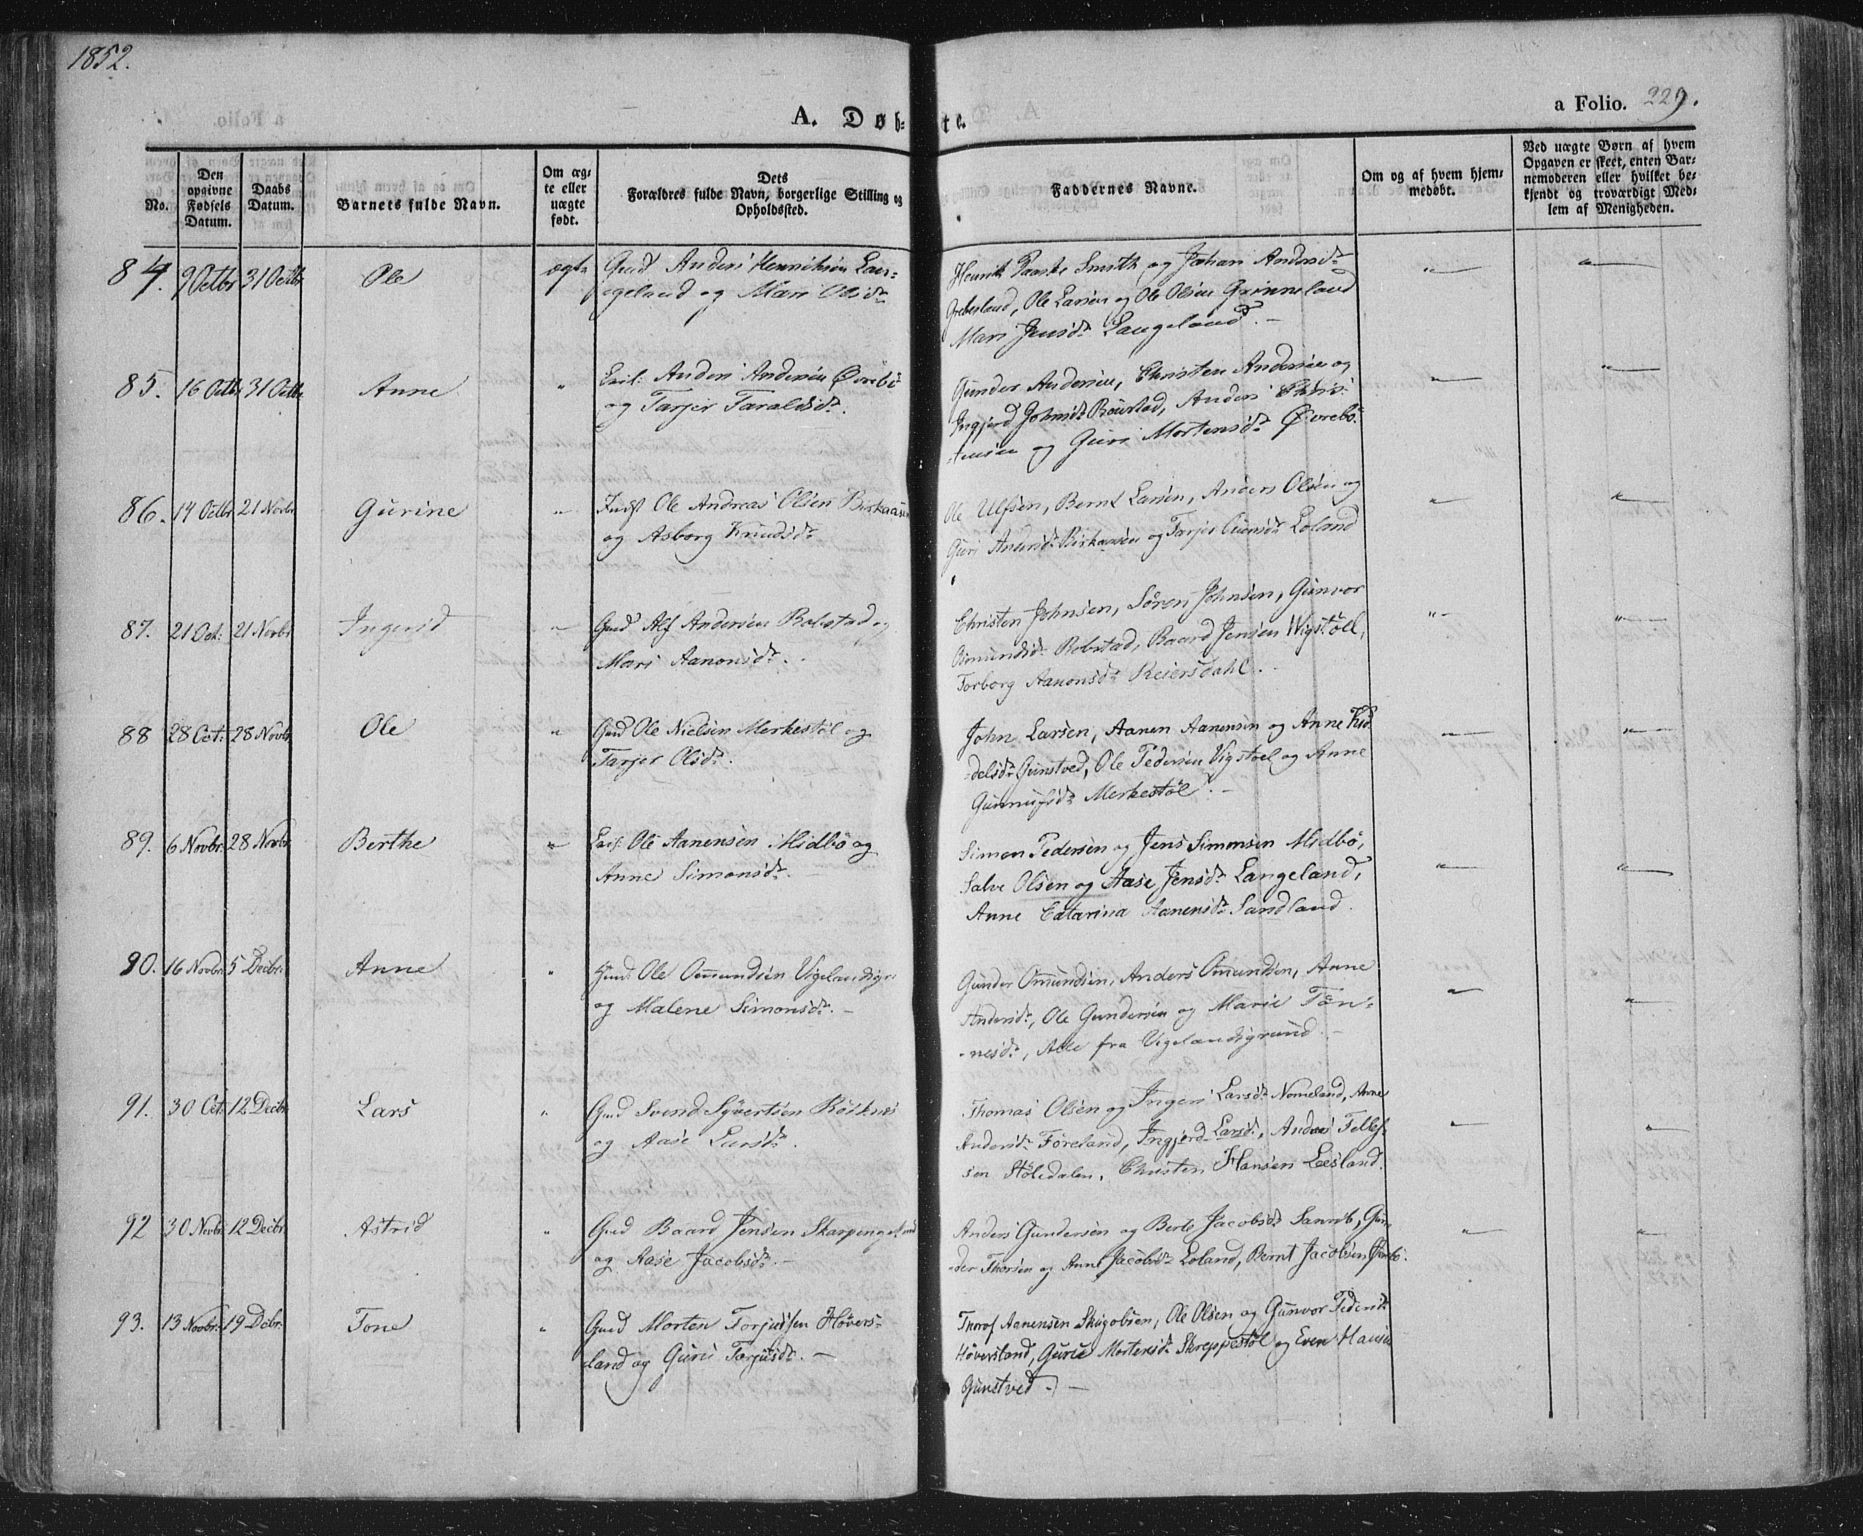 1852.
A. Døb-
te.
a Folio. 229.
No.
Den opgivne Fødsels Datum.
Daabs Datum.
Barnets fulde Navn.
Om ægte eller uægte født.
Dets
Forældres fulde Navn, borgerlige Stilling og
Opholdssted.
Faddernes Navne.
Om og af hvem hjem-
medøbt.
Ved uægte Børn af hvem
Opgaven er skeet, enten Bar-
nemoderen eller hvilket be-
kjendt og troværdigt Med-
lem af Menigheden.
84. 9 Octbr 31 Octbr Ole ægte Gmd Anders Henriksen Lan-
geland og Mari Olsdr
Henrik Smith og Johan Andersdr
Grebesland, Ole Larsen og Ole Olsen Grinneland
Mari Jensdr Langeland. -
85. 16 Octbr 31 Octbr Anne " Anders Andersen Øvrebö
og Tarjer Taraldsdr.
Gunder Andersen, Christen Andersen og
Ingjerd Johnsdr Böestad, Anders Chris-
tensen og Guri Mortensdr Øvrebö.
86. 14 Octbr 21 Novbr Gurine " Ole Andreas Olsen Birkaasen
og Asborg Knudsdr
Ole Ulfsen, Bernt Larsen, Anders Olsen og
Guri Andersdr Birkaasen og Tarjer Loland
87. 21 Oct: 21 Novbr Ingerid " Gmd Alf Andersen Robstad og
Mari Aanonsdr.
Christen Johnsen, Sören Johnsen, Gunvor
Osmundsdr Robstad, Baard Jensen Wigstöll,
Torborg Aanonsdr Reiersdahl.
88 28 Oct: 28 Novbr Ole " Gmd Ole Nielsen Merkestöl og
Tarjer Olsdr.
John Larsen, Aanen Aanensen og Anne
delsdr Gunstved, Ole Pedersen Vigstoel og Anne
Gunnufsdr Merkestöl. -
89. 6 Novbr. 28 Novbr Berthe " Ole Aanensen Midbö og
Anne Simonsdr. -
Simon Pedersen og Jens Simonsen Midbö,
Salve Olsen og Aase Jensdr Langeland,
Anne Catarina Aanensdr Sandland.
90. 16 Novbr 5 Decbr. Anne " Gmd Ole Omundsen Vigelandsgr.
og Malene Simonsdr. -
Gunder Omundsen, Anders Omundsen, Anne
Andersdr, Ole Gundersen og Marie Tön-
nesdr, Alle fra Vigelandsgrund. -
91. 30 Oct. 12 Decbr Lars " Gmd Svend Syvertsen Röiknes
og Aase Larsdr.
Thomas Olsen og Inger Larsdr Nomeland, Anne
Andersdr Föreland, Ingjerd Larsdr, Anders Tellef-
sen Stöledalen, Christen Hansen Leesland.
92 30 Novbr 12 Decbr. Astrid " Gmd Baard Jensen Skarpengeland
og Aase Jacobsdr. -
Anders Gundersen og Berte Jacobsdr Gun-
der Thorsen og Anne Jacobsdr Loland, Bernt Jacobsen
93. 13 Novbr. 19 Dcbr. Tone " Gmd Morten Torjussen Hövers-
land og Guri Tarjusdr. -
Thorof Aanensen Ole Olsen og Gunvor Pedersdr
Höversland, Gurie Mortensdr Skreppestöl og Even Hansen
Gunstved. -